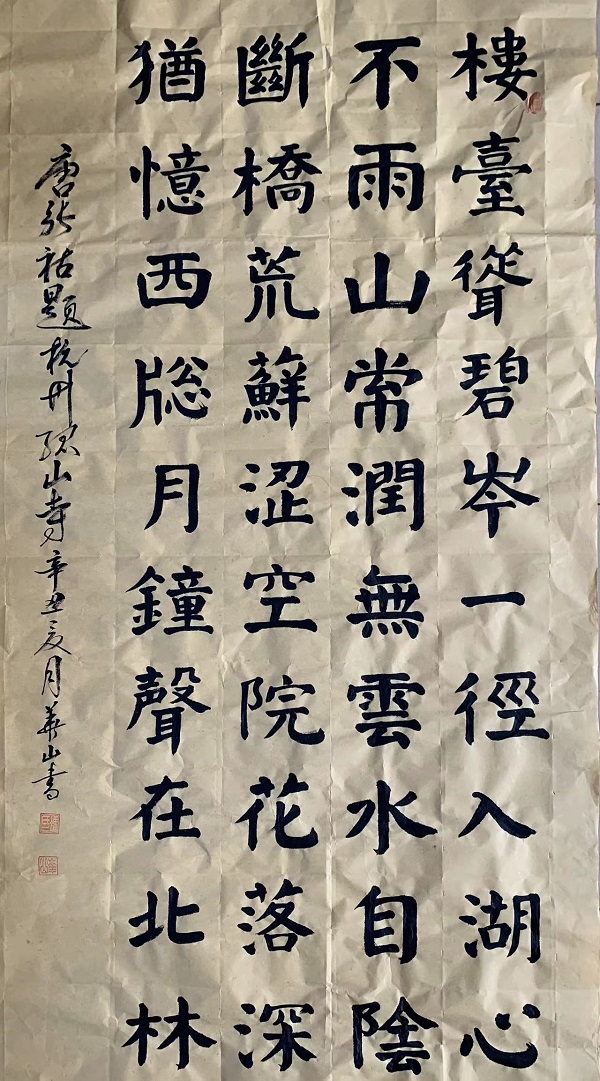 樓臺聳碧岑一徑入湖心
不雨山常潤無雲水自陰
斷橋荒蘚澀空院花落深
猶憶西牕月鐘聲在北林
唐張祜題杭州孤山寺辛丑夏月華山書